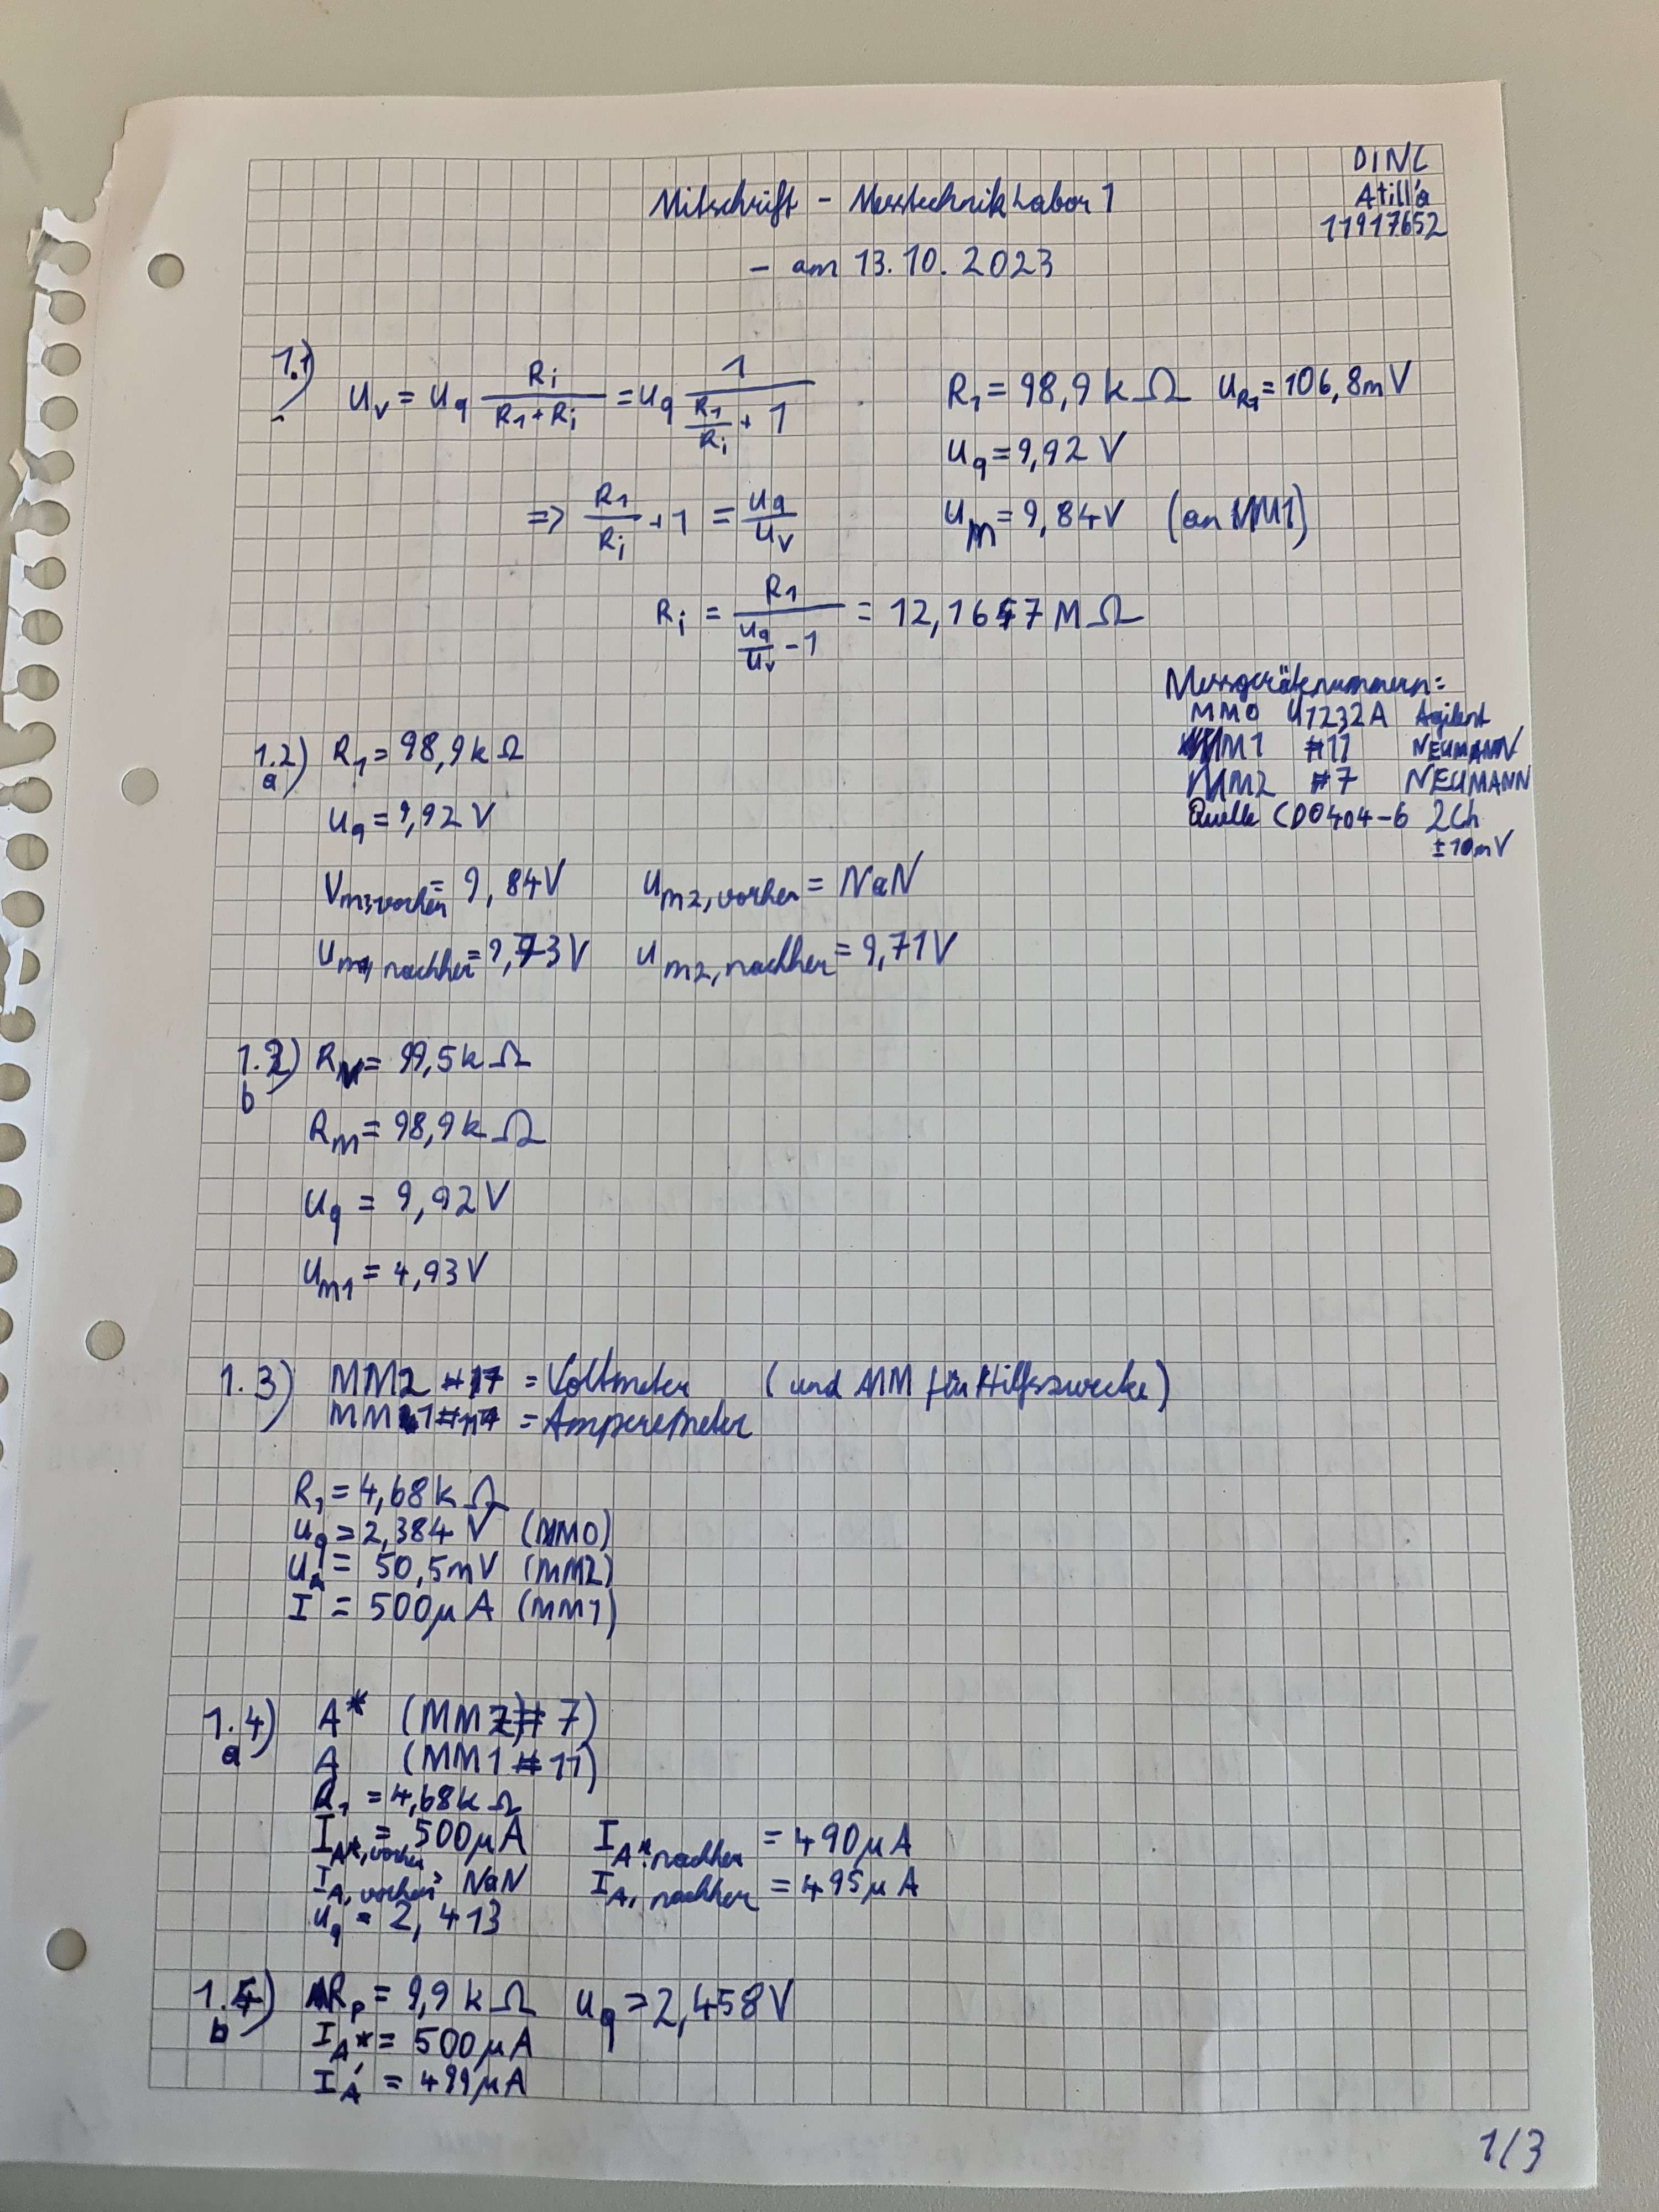 DINC
Atilla
11917652
Mitschrift - Messtechnik Labor 1
- am 13.10.2023
1.1) U_v = U_q R_i / (R_1 + R_i) = U_q 1 / (R_1/R_i + 1)
R_1 = 98,9 kΩ U_R1 = 106,8mV
U_q = 9,92 V
=> R_1/R_i + 1 = U_q/U_v
U_m = 9,84V (an MM1)
R_i = R_1 / (U_q/U_v - 1) = 12,1657 MΩ
Messgerätenummern:
MM0 U1232A Agilent
MM1 #11 NEUMANN
MM2 #7 NEUMANN
Quelle CD0404-6 2Ch
±10mV
1.2) a) R_1 = 98,9 kΩ
U_q = 9,92 V
U_m1,vorher = 9,84V U_m2,vorher = NaN
U_m1,nachher = 9,73V U_m2,nachher = 9,71V
1.2) b) R_v = 99,5 kΩ
R_m = 98,9 kΩ
U_q = 9,92 V
U_m1 = 4,93 V
1.3) MM2 #7 = Voltmeter (und MM für Hilfszwecke)
MM1 #11 = Amperemeter
R_1 = 4,68 kΩ
U_q = 2,384 V (MM0)
U_A = 50,5mV (MM2)
I = 500μA (MM1)
1.4) a) A* (MM2)#7)
A (MM1 #11)
R_1 = 4,68k Ω
I_A*,vorher = 500μA I_A*,nachher = 490μA
I_A,vorher = NaN I_A,nachher = 495μA
U_q = 2,413
1.4) b) R_p = 9,9 kΩ U_q = 2,458V
I_A* = 500μA
I_A' = 499μA
1/3